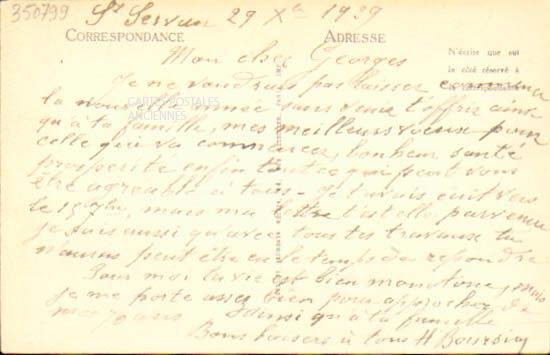 350799
St Servan 29 Xbre 1939
CORRESPONDANCE ADRESSE
Mon cher Georges
N'écrire que sur
le côté réservé à
Je ne voudrais pas laisser commencer
la nouvelle année sans venir t'offrir ainsi
CARTES POSTALES
ANCIENNES
qu'à ta famille, mes meilleurs voeux pour
celle qui va commencer, bonheur santé
prospérité enfin tout ce qui peut vous
être agréable à tous. Je t'avais écrit vers
le 15 mais ma lettre t'est elle parvenue
je sais aussi qu'avec tous tes travaux tu
n'auras peut être eu le temps de répondre
Pour moi la vie est bien monotone, mais
je me porte assez bien pour approcher de
mes 70 ans ainsi qu'à ta famille
Bons baisers à tous H Boursin